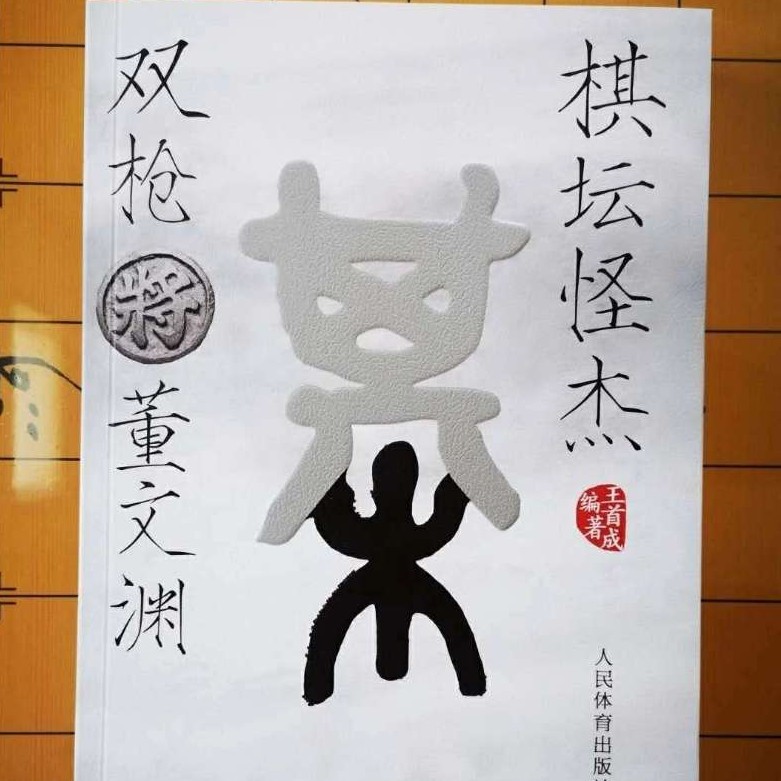 棋坛怪杰
双枪将董文渊
王首成
编著
人民体育出版